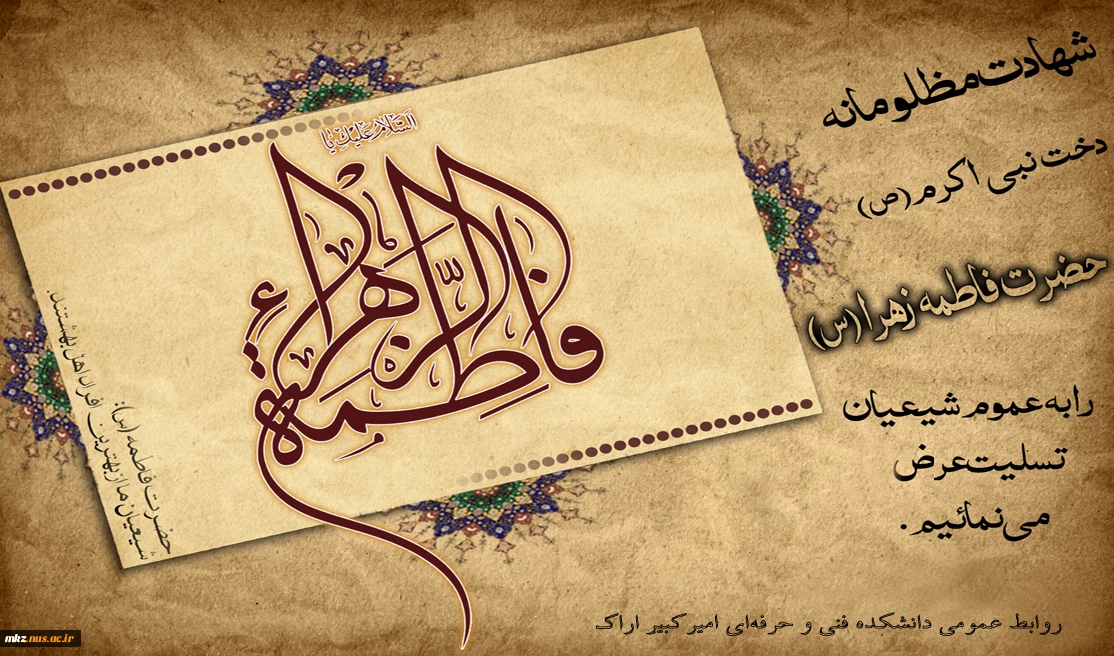 شهادت مظلومانه
دخت نبی اکرم (ص)
حضرت فاطمه زهرا (س)
را به عموم شیعیان
تسلیت عرض
می‌نمائیم .
السلام علیک یا
فاطمة الزهراء
حضرت فاطمه (س):
شیعیان ما از بهترین افراد اهل بهشتند.
روابط عمومی دانشکده فنی و حرفه‌ای امیرکبیر اراک
mkz.nus.ac.ir